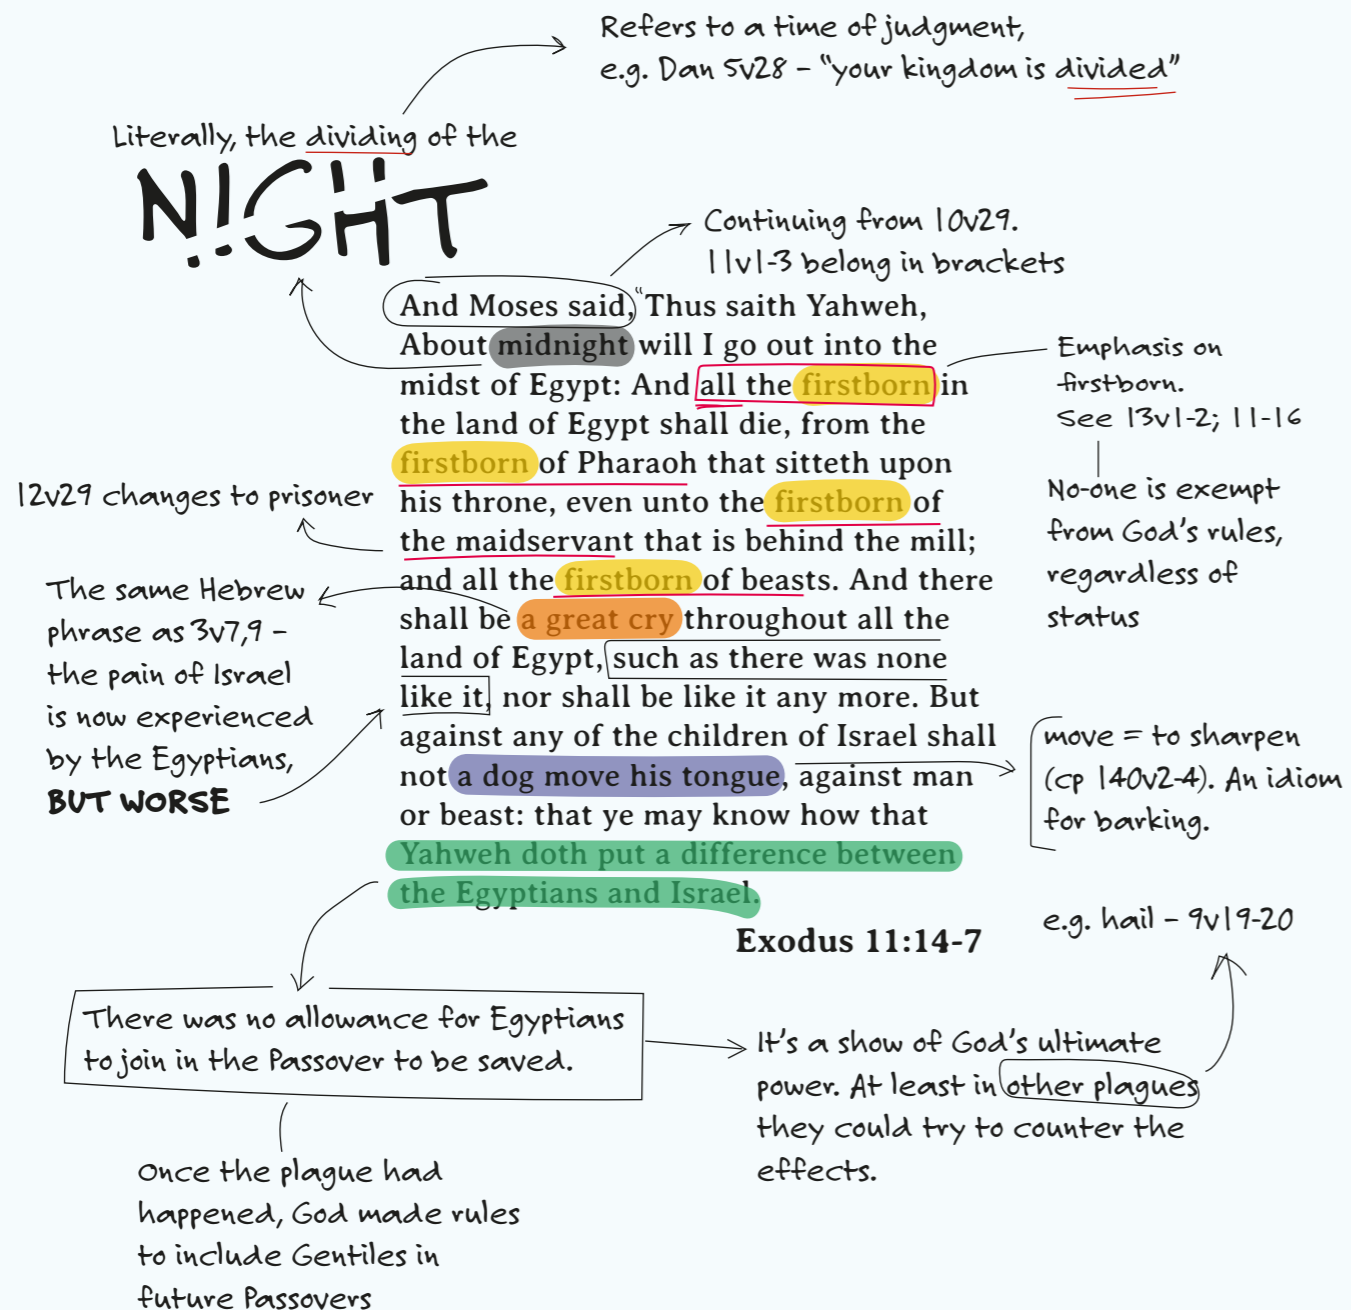 Refers to a time of judgment,
e.g. Dan 5v28 - "your kingdom is divided"
Literally, the dividing of the
NIGHT
Continuing from 10v29.
11v1-3 belong in brackets
And Moses said, "Thus saith Yahweh,
About midnight will I go out into the
midst of Egypt: And all the firstborn in
the land of Egypt shall die, from the
firstborn of Pharaoh that sitteth upon
his throne, even unto the firstborn of
the maidservant that is behind the mill;
and all the firstborn of beasts. And there
shall be a great cry throughout all the
land of Egypt, such as there was none
like it, nor shall be like it any more. But
against any of the children of Israel shall
not a dog move his tongue, against man
or beast: that ye may know how that
Yahweh doth put a difference between
the Egyptians and Israel.
Exodus 11:14-7
Emphasis on
firstborn.
See 13v1-2; 11-16
No-one is exempt
from God's rules,
regardless of
status
12v29 changes to prisoner
The same Hebrew
phrase as 3v7,9 -
the pain of Israel
is now experienced
by the Egyptians,
BUT WORSE
move = to sharpen
(cp 140v2-4). An idiom
for barking.
e.g. hail - 9v19-20
There was no allowance for Egyptians
to join in the Passover to be saved.
It's a show of God's ultimate
power. At least in other plagues
they could try to counter the
effects.
Once the plague had
happened, God made rules
to include Gentiles in
future Passovers